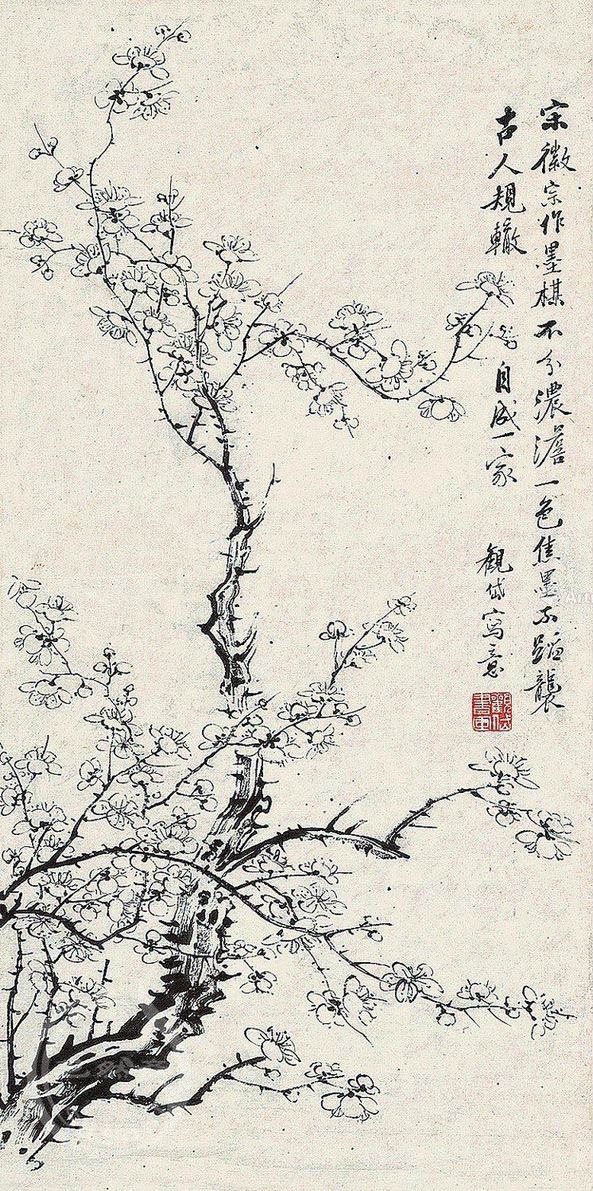 宋徽宗作墨楳不分濃澹一色焦墨不蹈襲
古人規轍 自成一家 觀岱寫意